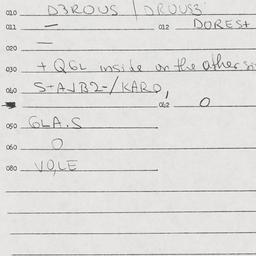 010 D3ROUS / DROUS3
011 — 012 DOREST
020 —
030 + QGL inside on the other si
040 S+AJB2-/KARO,
062 O
050 GLA.S
060 O
080 VOLE